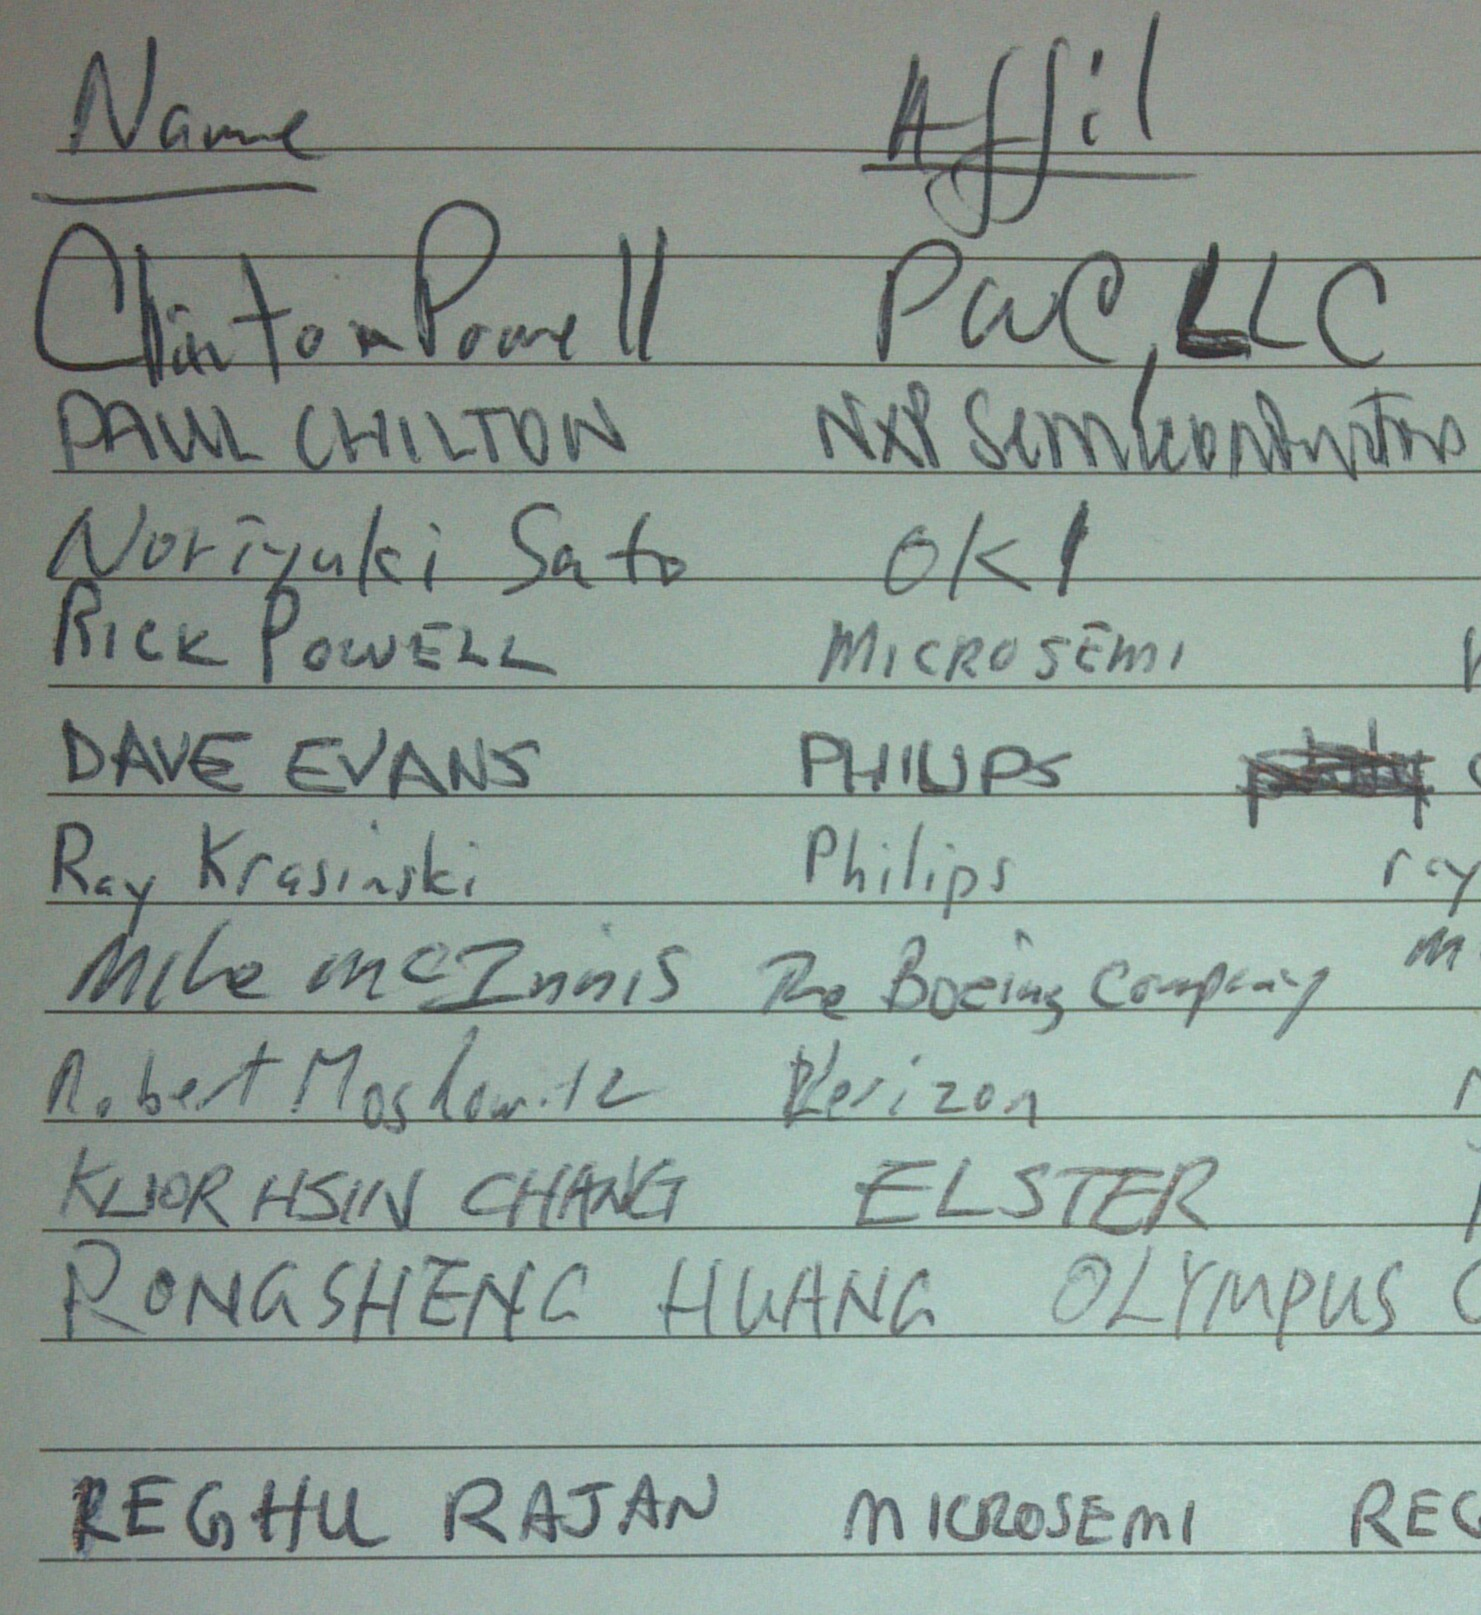 Name Affil
Clinton Powell PWC, LLC
PAUL CHILTON NXP Semiconductors
Noriyuki Sato OKI
RICK POWELL MICROSEMI
DAVE EVANS PHILIPS
Ray Krasinski Philips ray
Mike McInnis The Boeing Company m
Robert Moskowitz Verizon
KUOR HSIN CHANG ELSTER
RONGSHENG HUANG OLYMPUS C
REGHU RAJAN MICROSEMI REG